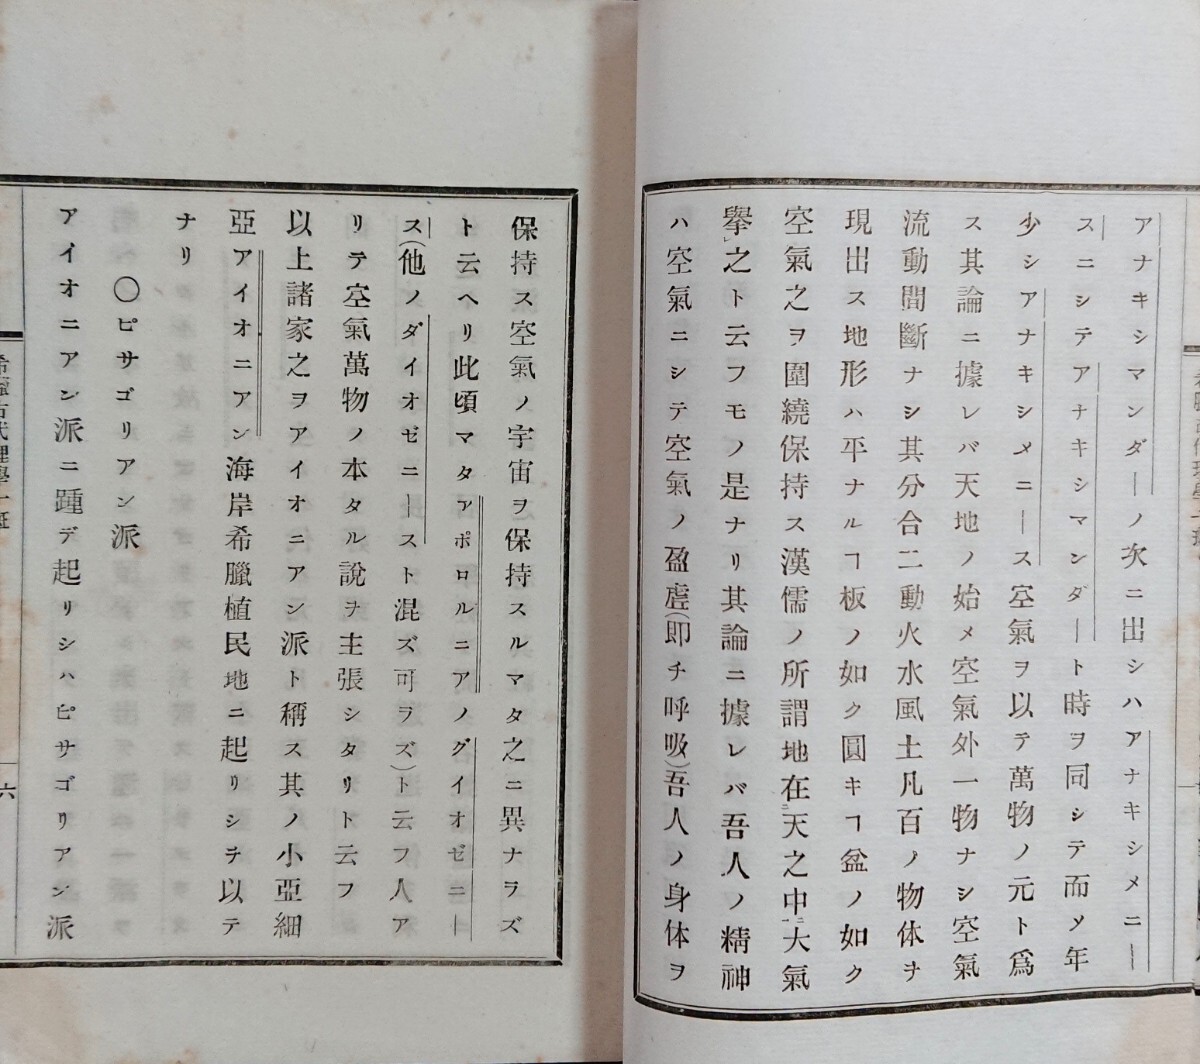 アナキシマンダーノ次ニ出シハアナキシメニー
スニシテアナキシマンダート時ヲ同シテ而メ年
少シアナキシメニース空氣ヲ以テ萬物ノ元ト爲
ス其論ニ據レバ天地ノ始メ空氣外一物ナシ空氣
流動間斷ナシ其分合二動火水風土凡百ノ物体ヲ
現出ス地形ハ平ナルヿ板ノ如ク圓キヿ盆ノ如ク
空氣之ヲ圍繞保持ス漢儒ノ所謂地在二天之中一大氣
擧レ之ト云フモノ是ナリ其論ニ據レバ吾人ノ精神
ハ空氣ニシテ空氣ノ盈虚(即チ呼吸)吾人ノ身体ヲ
保持ス空氣ノ宇宙ヲ保持スルマタ之ニ異ナラズ
ト云ヘリ此頃マタアポロルニアノダイオゼニー
ス(他ノダイオゼニースト混ズ可ラズ)ト云フ人ア
リテ空氣萬物ノ本タル說ヲ主張シタリト云フ
以上諸家之ヲアイオニアン派ト稱ス其ノ小亞細
亞アイオニアン海岸希臘植民地ニ起リシヲ以テ
ナリ
〇ピサゴリアン派
アイオニアン派ニ踵デ起リシハピサゴリアン派
希臘古代理學一斑
六